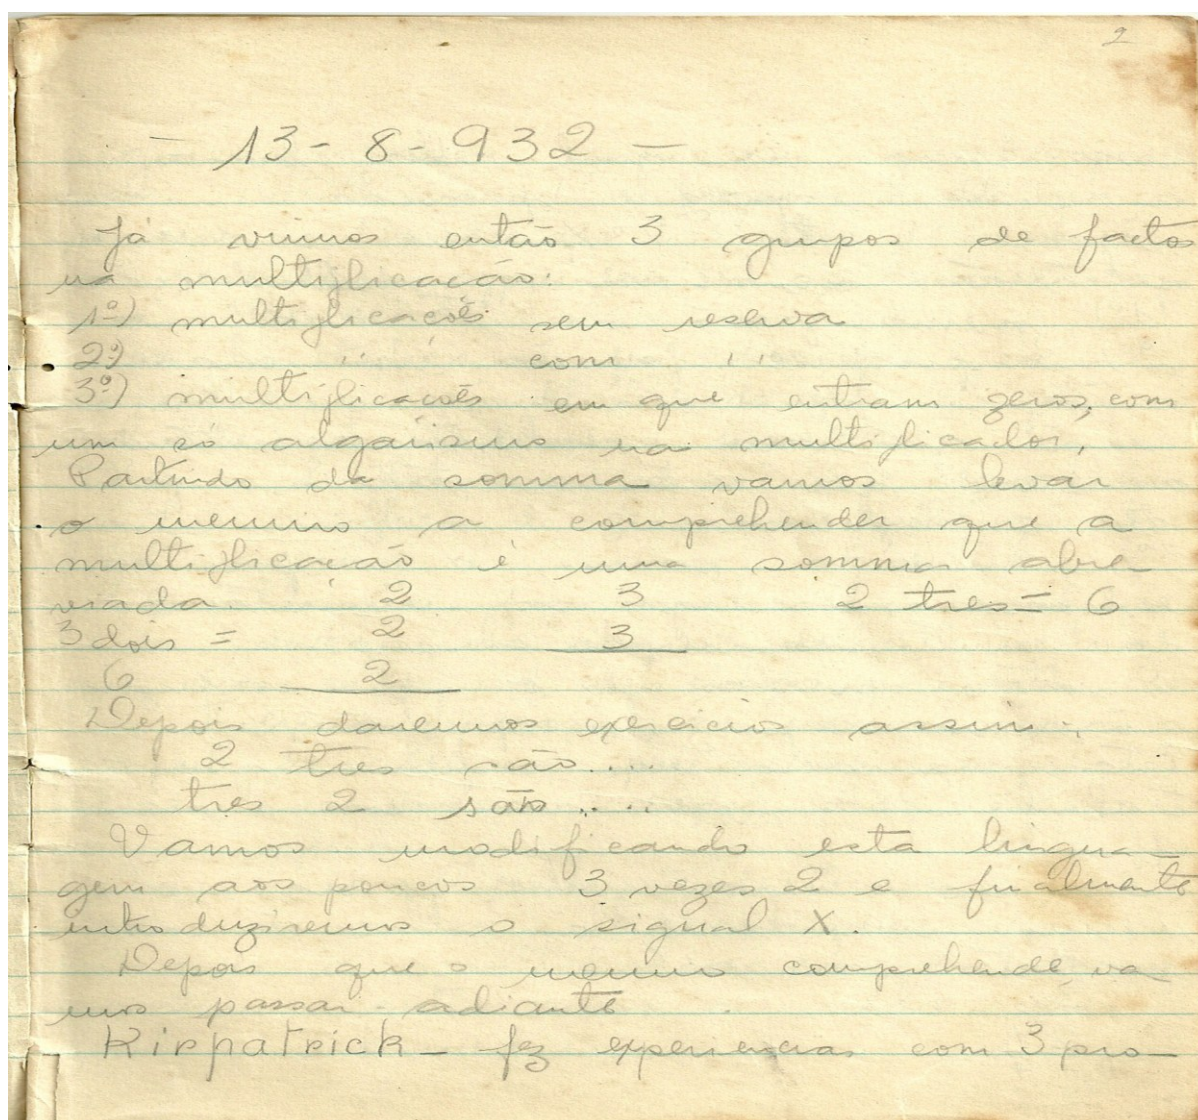 2
- 13 - 8 - 932 -
Já vimos então 3 grupos de factos
na multiplicação:
1º) multiplicações sem reserva
2º) " " com " "
3º) multiplicações em que entram zeros, com
um só algarismo no multiplicador.
Partindo da somma vamos levar
o menino a comprehender que a
multiplicação é uma somma abre
viada. 2 3 2 tres = 6
3 dois = 2 3
6 2
Depois daremos exercicios assim:
2 tres são....
tres 2 são....
Vamos modificando esta lingua-
gem aos poucos 3 vezes 2 e finalmente
introduziremos o signal X.
Depois que o menino comprehende, va
mos passar adiante.
Kirpatrick - fez experiencias com 3 pro-